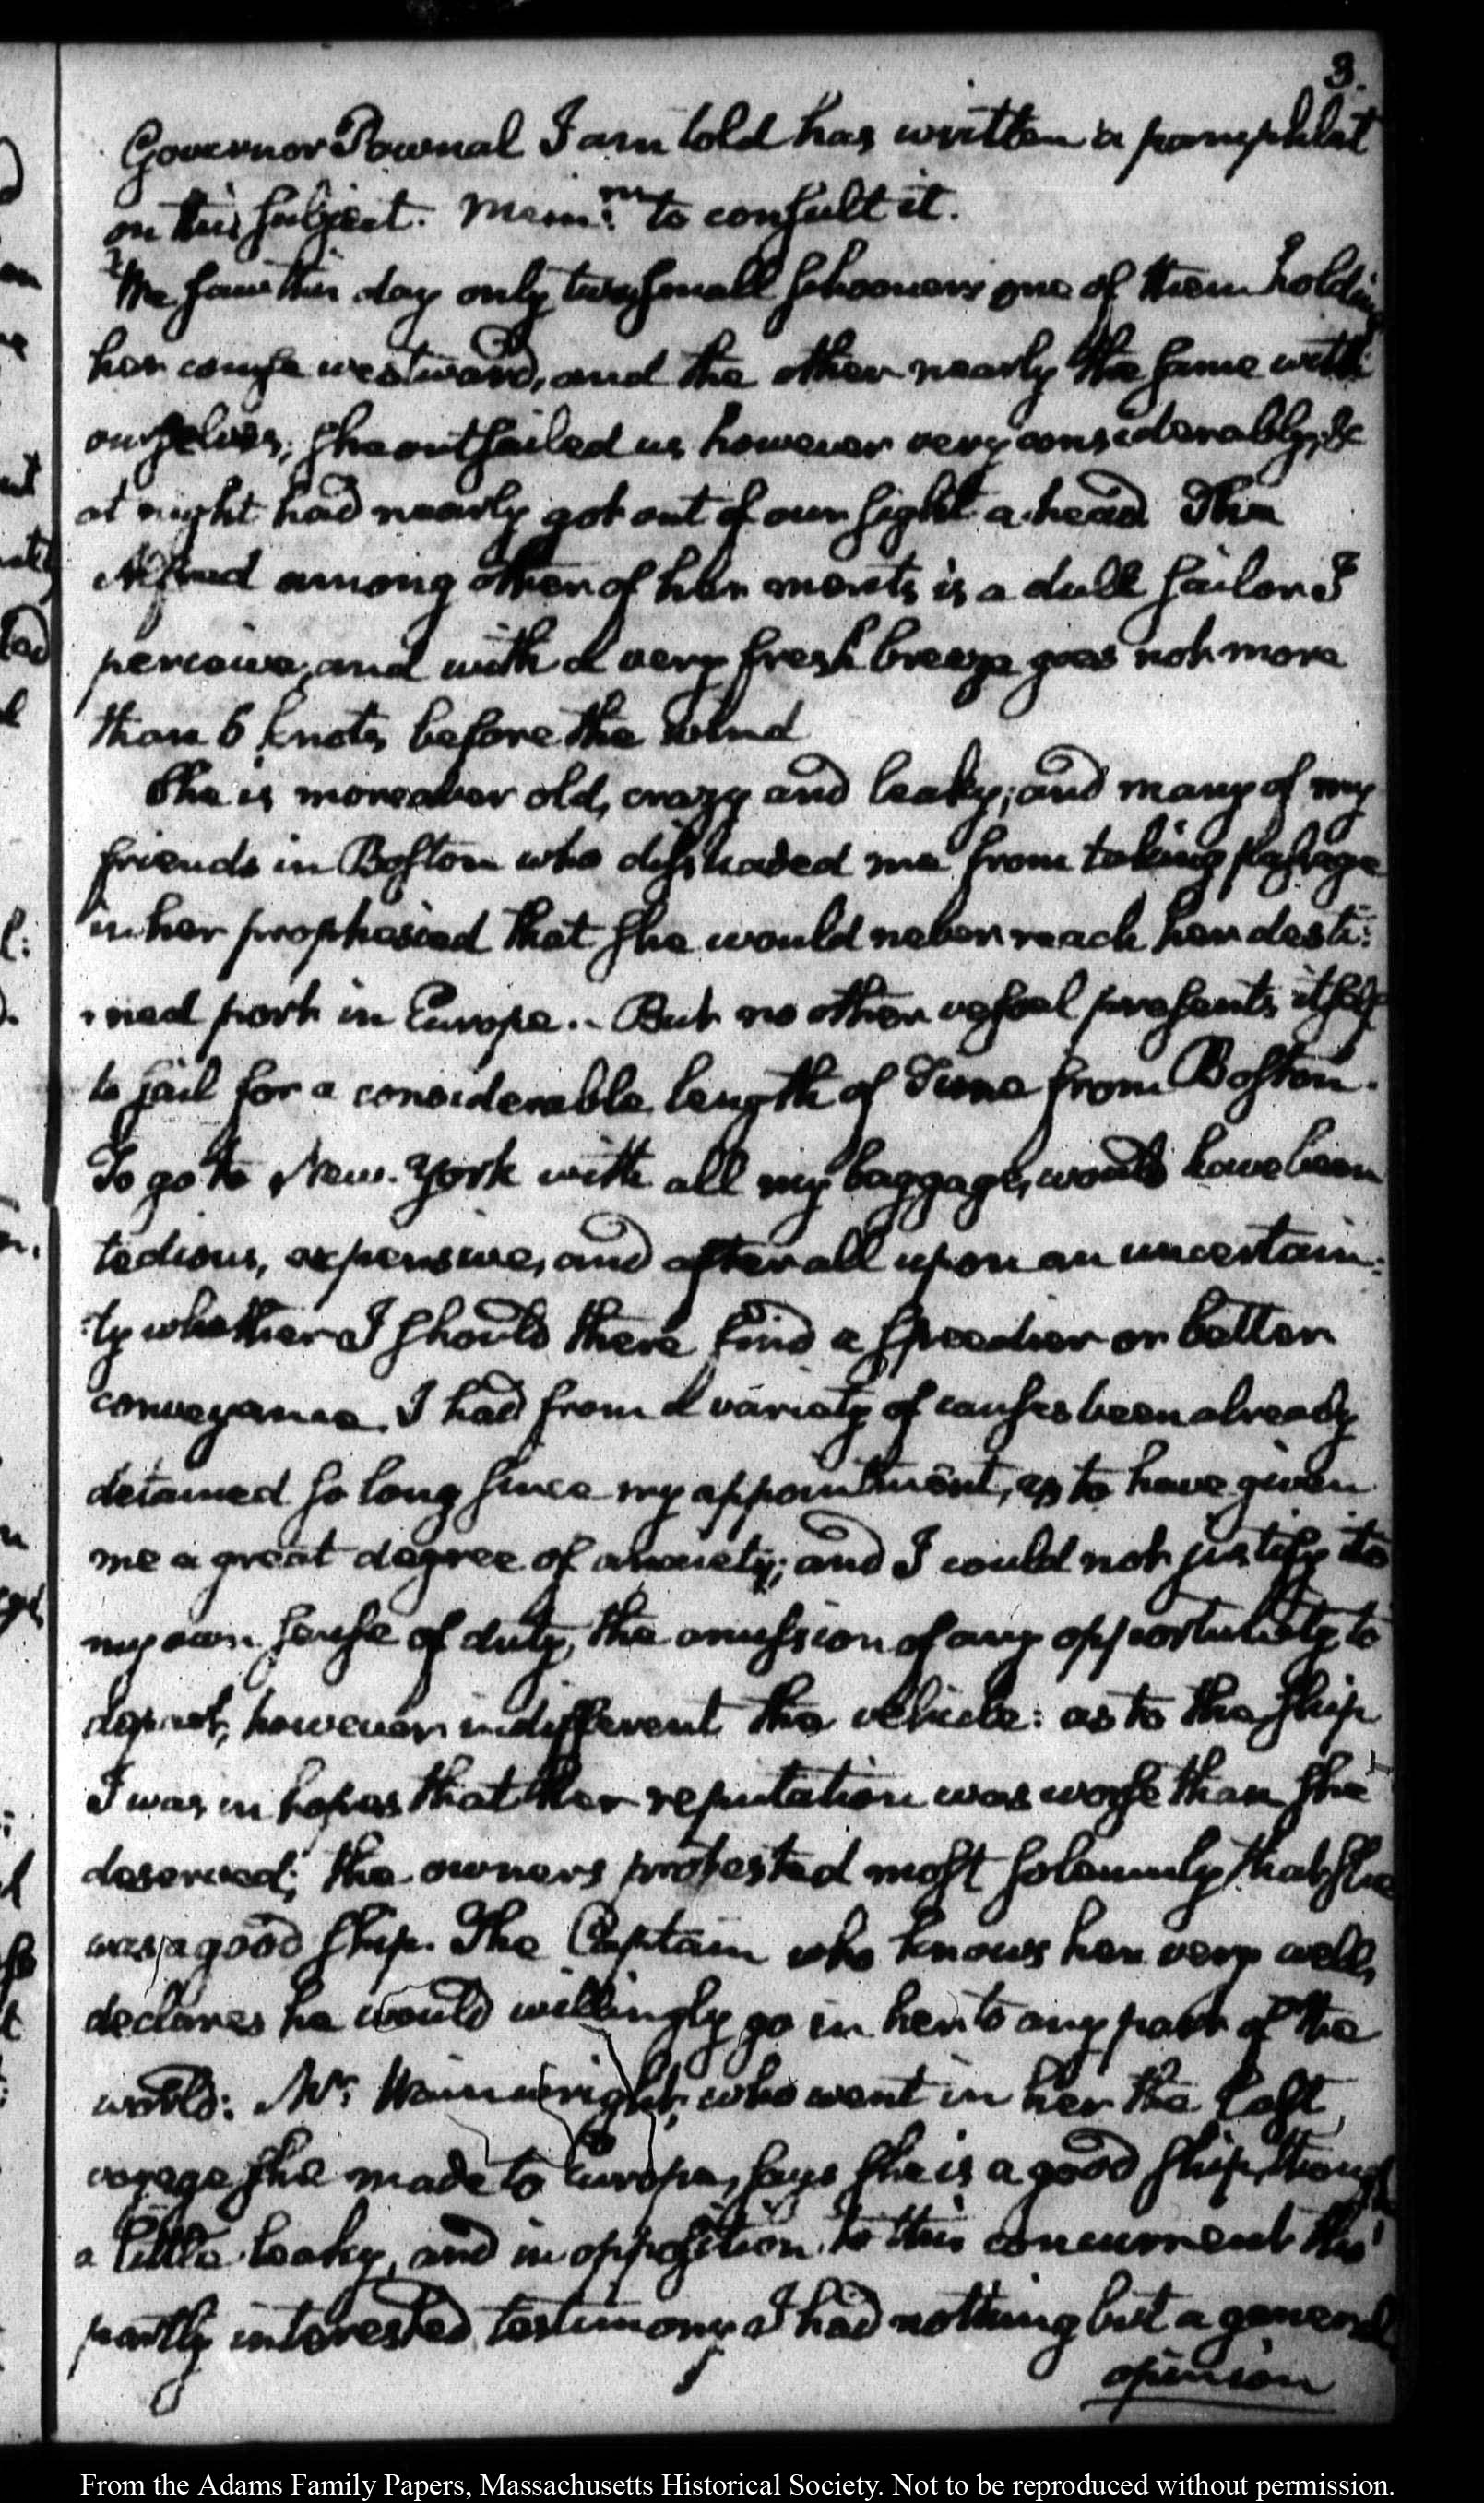 3.
Governor Pownal I am told has written a pamphlet
on this subject. Mem:m to consult it.
We saw this day only two small schooners one of them holding
her course westward, and the other nearly the same with
ourselves; she outsailed us however very considerably, &
at night had nearly got out of our sight a-head. The
Alfred among other of her merits is a dull sailor I
perceive, and with a very fresh breeze goes not more
than 6 knots before the wind
She is moreover old, crazy and leaky; and many of my
friends in Boston who dissuaded me from taking passage
in her prophesied that she would never reach her desti:
:ned port in Europe.. But no other vessel presents itself
to sail for a considerable length of Time from Boston.
To go to New-York with all my baggage, would have been
tedious, expensive, and after all upon an uncertain:
:ty whether I should there find a speedier or better
conveyance. I had from a variety of causes been already
detained so long since my appointment, as to have given
me a great degree of anxiety; and I could not justify to
my own sense of duty, the omission of any opportunity to
depart, however indifferent the vehicle: as to the ship
I was in hopes that her reputation was worse than she
deserved; the owners protested most solemnly that she
was a good ship. The Captain who knows her very well,
declares he would willingly go in her to any part of the
world: Mr. Wainwright, who went in her the last
voyage she made to Europe, says she is a good ship, though
a little leaky, and in opposition to this concurrent tho'
partly interested testimony I had nothing but a general
opinion
From the Adams Family Papers, Massachusetts Historical Society. Not to be reproduced without permission.